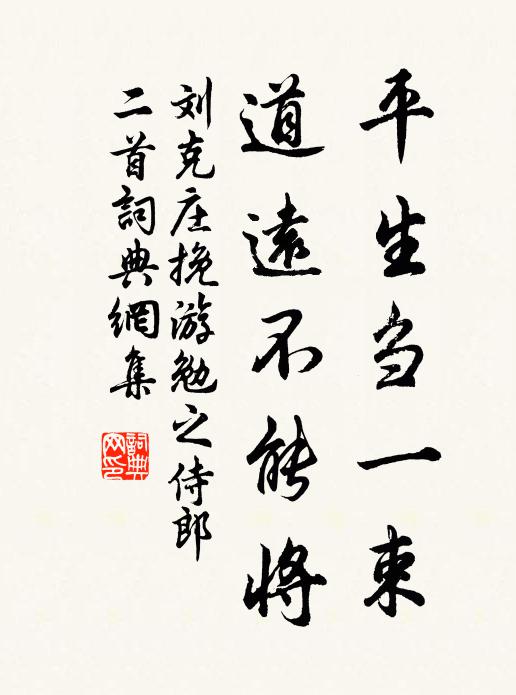 平生刍一束
道遠不能將
刘克庄挽游勉之侍郎
二首詞典網集
詞典
网印